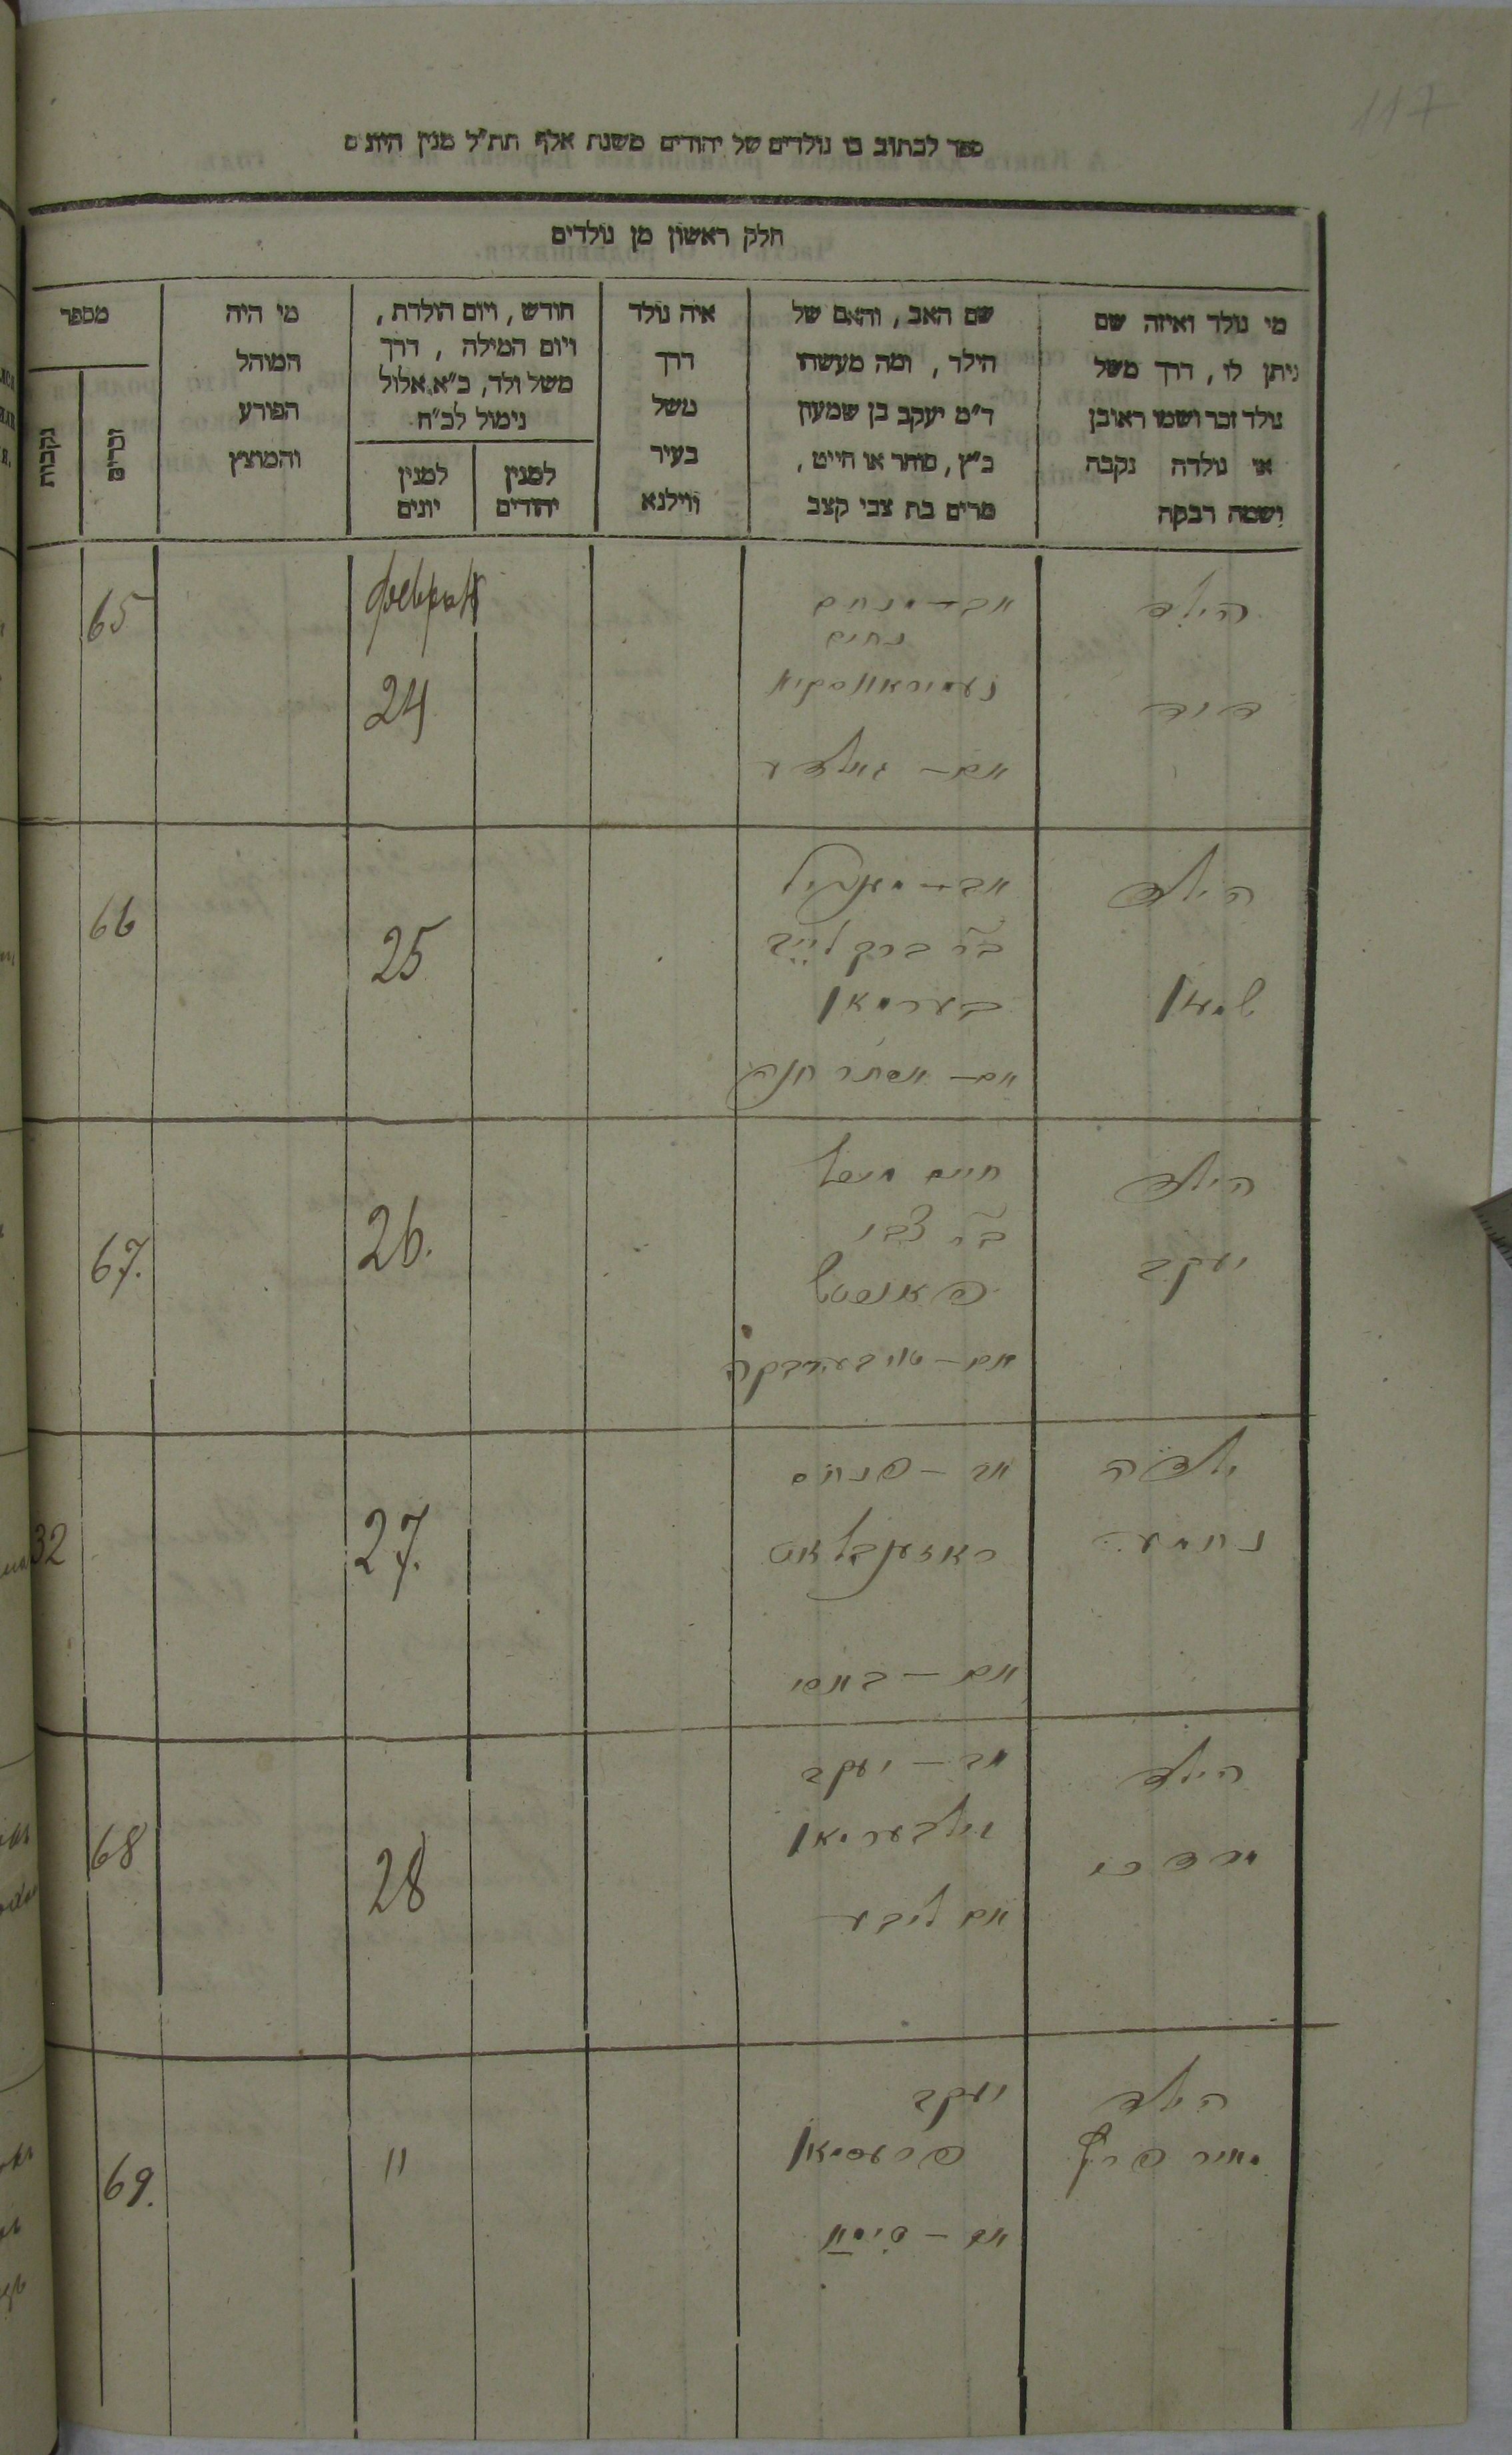 117
ספר לכתוב בו נולדים של יהודים משנת אלף תת"ל מנין היונים
חלק ראשון מן נולדים
מי נולד ואיזה שם
ניתן לו, דרך משל
נולד זכר ושמו ראובן
או נולדה נקבה
ושמה רבקה
שם האב, והאם של
הילד, ומה מעשהו
ד"מ יעקב בן שמעון
כ"ץ, סוחר או חייט,
מרים בת צבי קצב
איה נולד
דרך
משל
בעיר
ווילנא
חודש, ויום הולדת,
ויום המילה, דרך
משל ולד, כ"א אלול
נימול לכ"ח
למנין
יהודים
למנין
יונים
מי היה
המוהל
הפורע
והמוצץ
מספר
זכרים
נקבות
הילד
דוד
אב – מנחם
נחום
אם – גאלדע
февраля
24
65
הילד
שמעון
אב –
ב"ר ברך לייב
בערמאן
אם – אסתר חנה
25
66
הילד
יעקב
חיים
ב"ר צבי
אם – טויבע רבקה
26.
67.
ילדה
נחמע
אב – פנחס
ראזענבלאט
אם – באסי
27.
32
הילד
מרדכי
אב – יעקב
זילבערמאן
אם ליבע
28
68
הילד
מאיר
יעקב
אם – סימא
"
69.